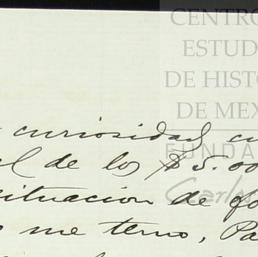 CENTRO
ESTUD
DE HISTO
DE MEX
FUNDA
Carlos
curiosidad cu
el de los $5.00
situacion de
me temo, Pa